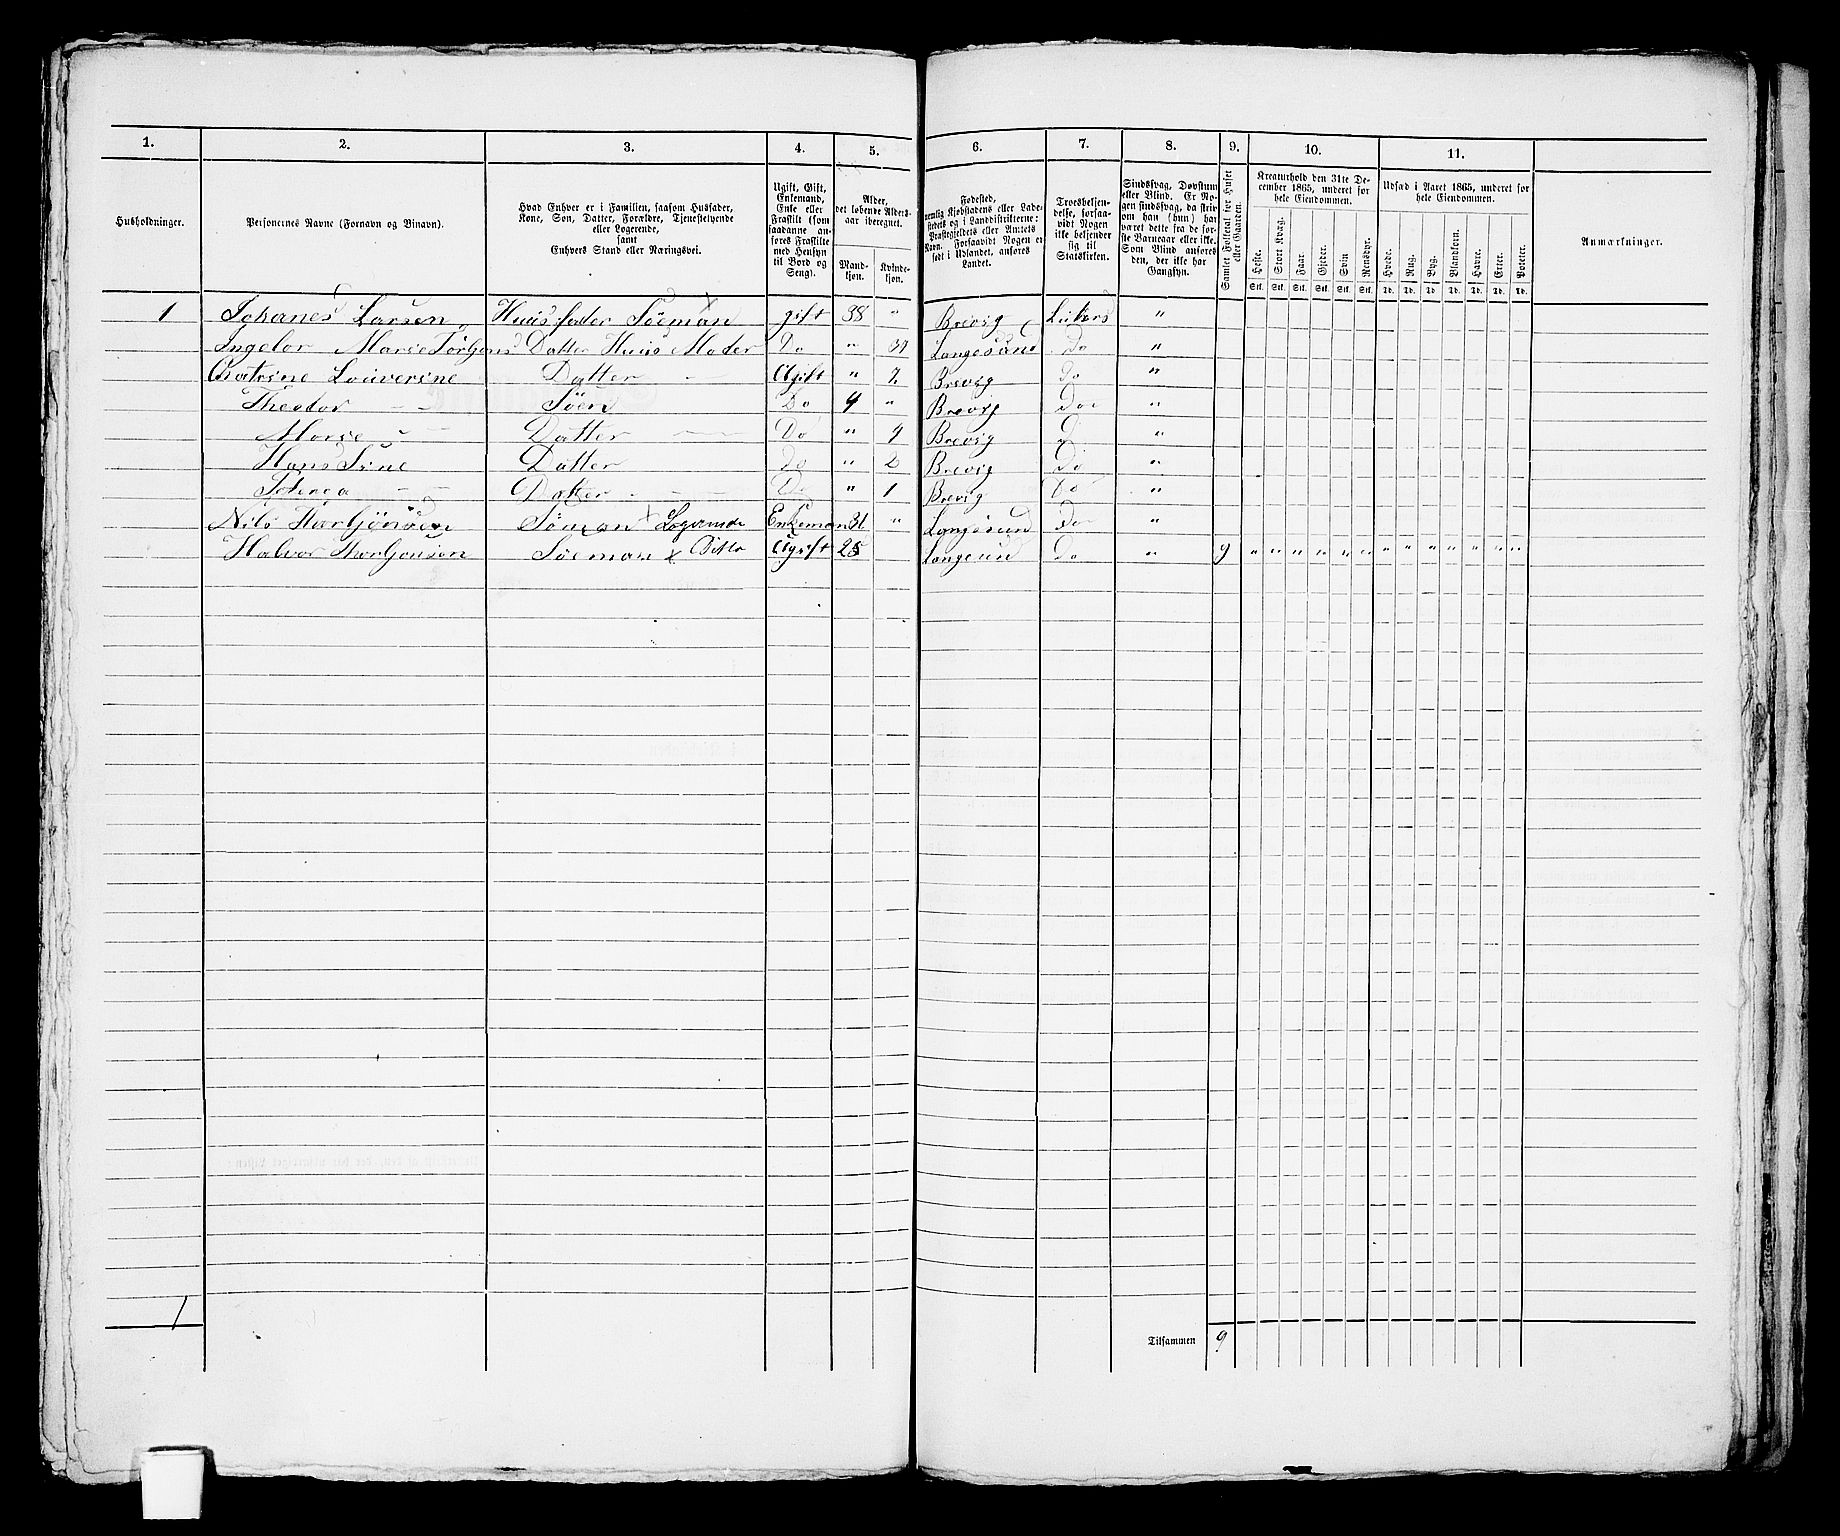 1. 2. 3. 4. 5. 6. 7. 8. 9. 10. 11.
Husholdninger.
Personernes Navne (Fornavn og Binavn).
Hvad Enhver er i Familien, saasom Husfader,
Kone, Søn, Datter, Forældre, Tjenestetyende
eller Logerende,
samt
Enhvers Stand eller Næringsvei.
Ugift, Gift,
Enkemand,
Enke eller
Fraskilt (som
saadanne an-
føres Fraskilte
med Hensyn
til Bord og
Seng).
Alder,
det løbende Alders-
aar iberegnet.
Mand-
kjøn.
Kvinde-
kjøn.
Fødested,
nemlig Kjøbstadens eller Lade-
stedets og i Landdistrikterne:
Præstegjeldets eller Amtets
Navn. Forsaavidt Nogen er
født i Udlandet, anføres
Landet.
Troesbekjen-
delse, forsaa-
vidt Nogen
ikke bekjender
sig til
Statskirken.
Sindssvag, Døvstum
eller Blind. Er No-
gen sindssvag, da skriv
om han (hun) har
været dette fra de før-
ste Barneaar eller ikke.
Som Blind anføres
den, der ikke har
Gangsyn.
Samlet Folketal for Huset
eller Gaarden.
Kreaturhold den 31te De-
cember 1865, underet for
hele Eiendommen.
Heste. Stort Kvæg. Faar. Gjeder. Svin Rensdyr.
Stk. Stk. Stk. Stk. Stk. Stk.
Udsæd i Aaret 1865, underet for
hele Eiendommen.
Hvede. Rug. Byg. Blandkorn. Havre. Erter. Poteter.
Td. Td. Td. Td. Td. Td. Td.
Anmærkninger.
1 Johanes Larsen Huus fader Söeman gift 38 " Brevig "
Marie Datter Huus Moder Do " Langesund Do "
Louverine Datter Ugift " 7 Brevig Do "
Theodor Söen Do 4 " Brevig Do "
Marie Datter Do " 4 Brevig Do "
Hans Datter Do " 2 Brevig Do "
Datter Do " 1 Brevig Do "
Nils Söman X Logerende Enkeman 31 " Langesund Do "
Halvor Söeman X Ditto Ugift 25 Langesun Do " 9 " " " " " " " " " " " " "
1
Tilsammen 9